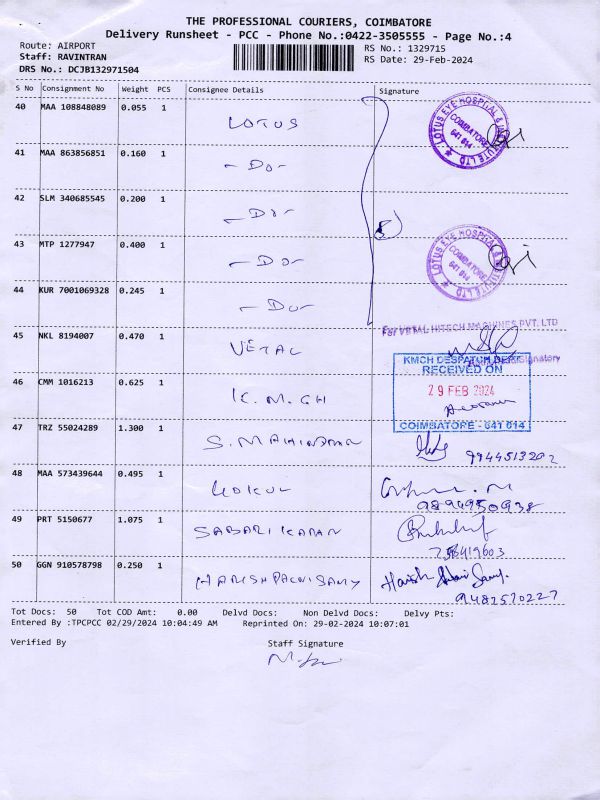 THE PROFESSIONAL COURIERS, COIMBATORE
Delivery Runsheet - PCC - Phone No.:0422-3505555 - Page No.:4
Route: AIRPORT
RS No.: 1329715
Staff: RAVINTRAN
RS Date: 29-Feb-2024
DRS No.: DCJB132971504
S No Consignment No Weight PCS Consignee Details Signature
40 MAA 108848089 0.055 1 LOTUS
LOTUS EYE HOSPITAL & INSTITUTE LTD
COIMBATORE
641 014
41 MAA 863856851 0.160 1 -Do-
42 SLM 340685545 0.200 1 -Do-
43 MTP 1277947 0.400 1 -Do-
LOTUS EYE HOSPITAL & INSTITUTE LTD
COIMBATORE
641 014
44 KUR 7001069328 0.245 1 -Do-
45 NKL 8194007 0.470 1 VETAL
For VETAL HITECH MACHINES PVT. LTD
Signatory
46 CMM 1016213 0.625 1 K.M.CH
KMCH DESPATCH DEPT
RECEIVED ON
29 FEB 2024
COIMBATORE - 641 014
47 TRZ 55024289 1.300 1 S. MAHINDRAN
48 MAA 573439644 0.495 1 GOKUL
49 PRT 5150677 1.075 1 SABARI KARAN
50 GGN 910578798 0.250 1 HARISH PALNISAMY
9482570227
Tot Docs: 50 Tot COD Amt: 0.00 Delvd Docs: Non Delvd Docs: Delvy Pts:
Entered By :TPCPCC 02/29/2024 10:04:49 AM Reprinted On: 29-02-2024 10:07:01
Verified By Staff Signature